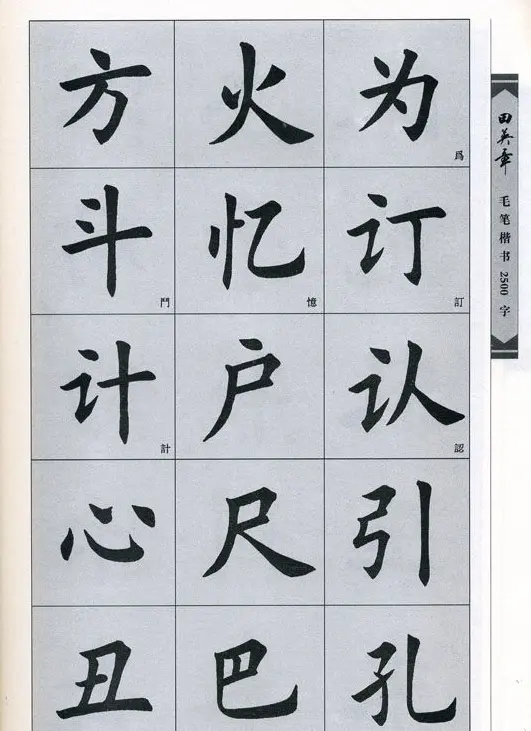 方 火 为
爲
斗 忆 订
鬥 憶 訂
计 户 认
計 認
心 尺 引
丑 巴 孔
田英章 毛笔楷书2500字